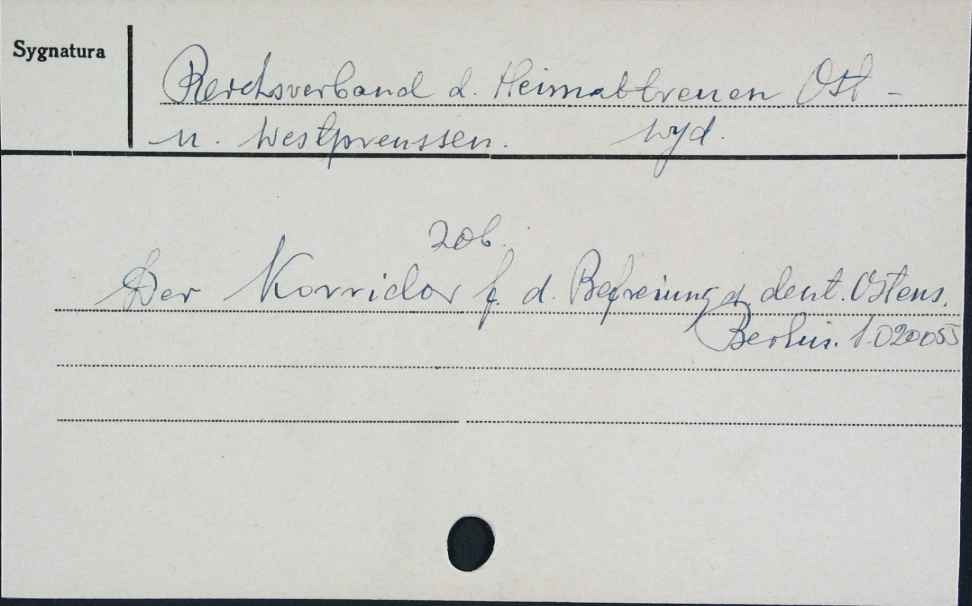 Sygnatura
Reichsverband d. Heimattreuen Ost -
u. Westpreussen. wyd.
zob.
Der Korridor f. d. Befreiung d. deut. Ostens.
Berlin. 1.020055